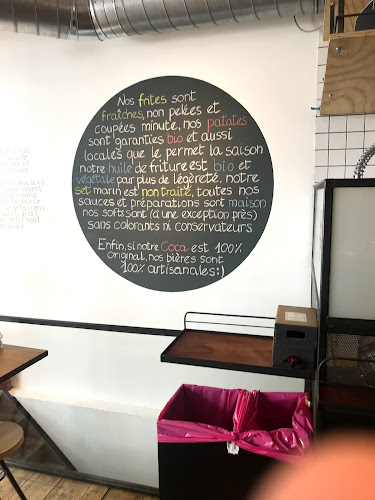 Nos frites sont
fraîches, non pelées et
coupées minute, nos patates
sont garanties bio et aussi
locales que le permet la saison
notre huile de friture est bio et
végétale pour plus de légèreté, notre
sel marin est non traité, toutes nos
sauces et préparations sont maison
nos soft sont (à une exception près)
sans colorants ni conservateurs
Enfin, si notre Coca est 100%
original, nos bières sont
100% artisanales:)